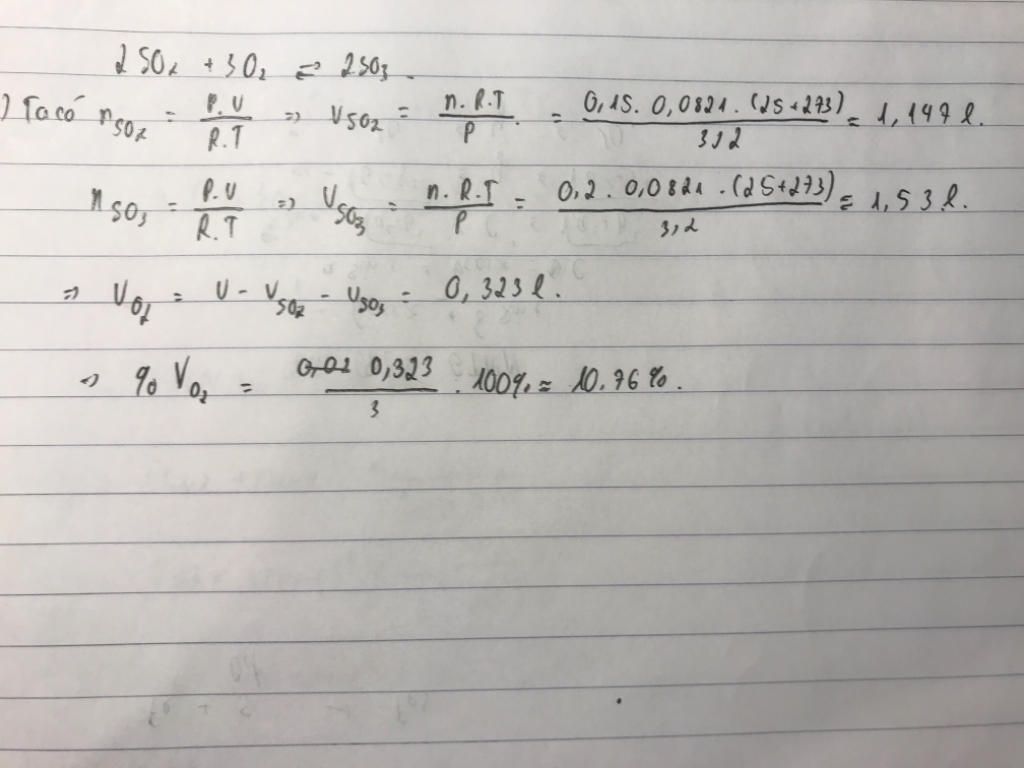 2SO₂ + 3O₂ ⇌ 2SO₃.
) Ta có n_SO₂ = P.V / R.T => V_SO₂ = n.R.T / P. = 0,15. 0,0821. (25+273) / 3,2 = 1,147 l.
n_SO₃ = P.V / R.T => V_SO₃ = n.R.T / P = 0,2. 0,0821. (25+273) / 3,2 = 1,53 l.
=> V_O₂ = V - V_SO₂ - V_SO₃ = 0,323 l.
=> % V_O₂ = 0,323 / 3 . 100% ≈ 10.76 %.